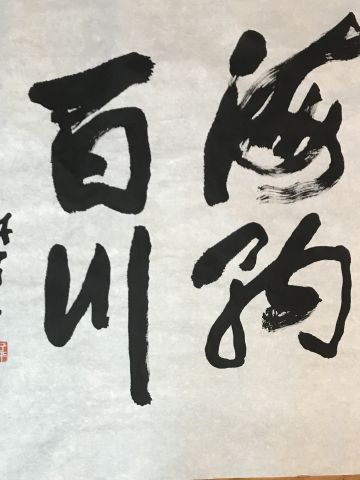 海納
百川